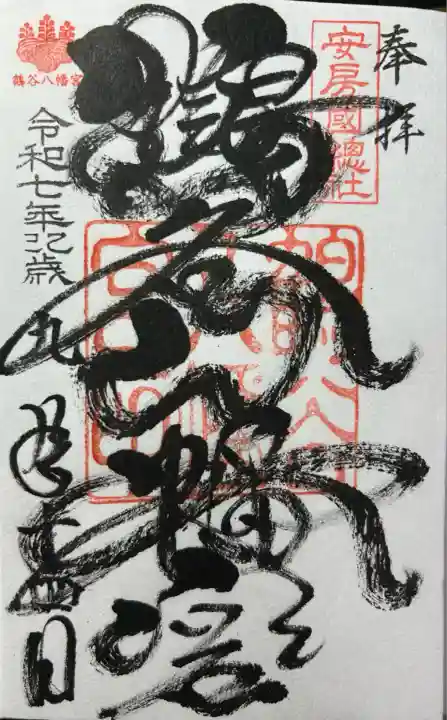 奉拝
安房國總社
鶴谷八幡宮
鶴谷八幡宮
令和七年
九月十四日